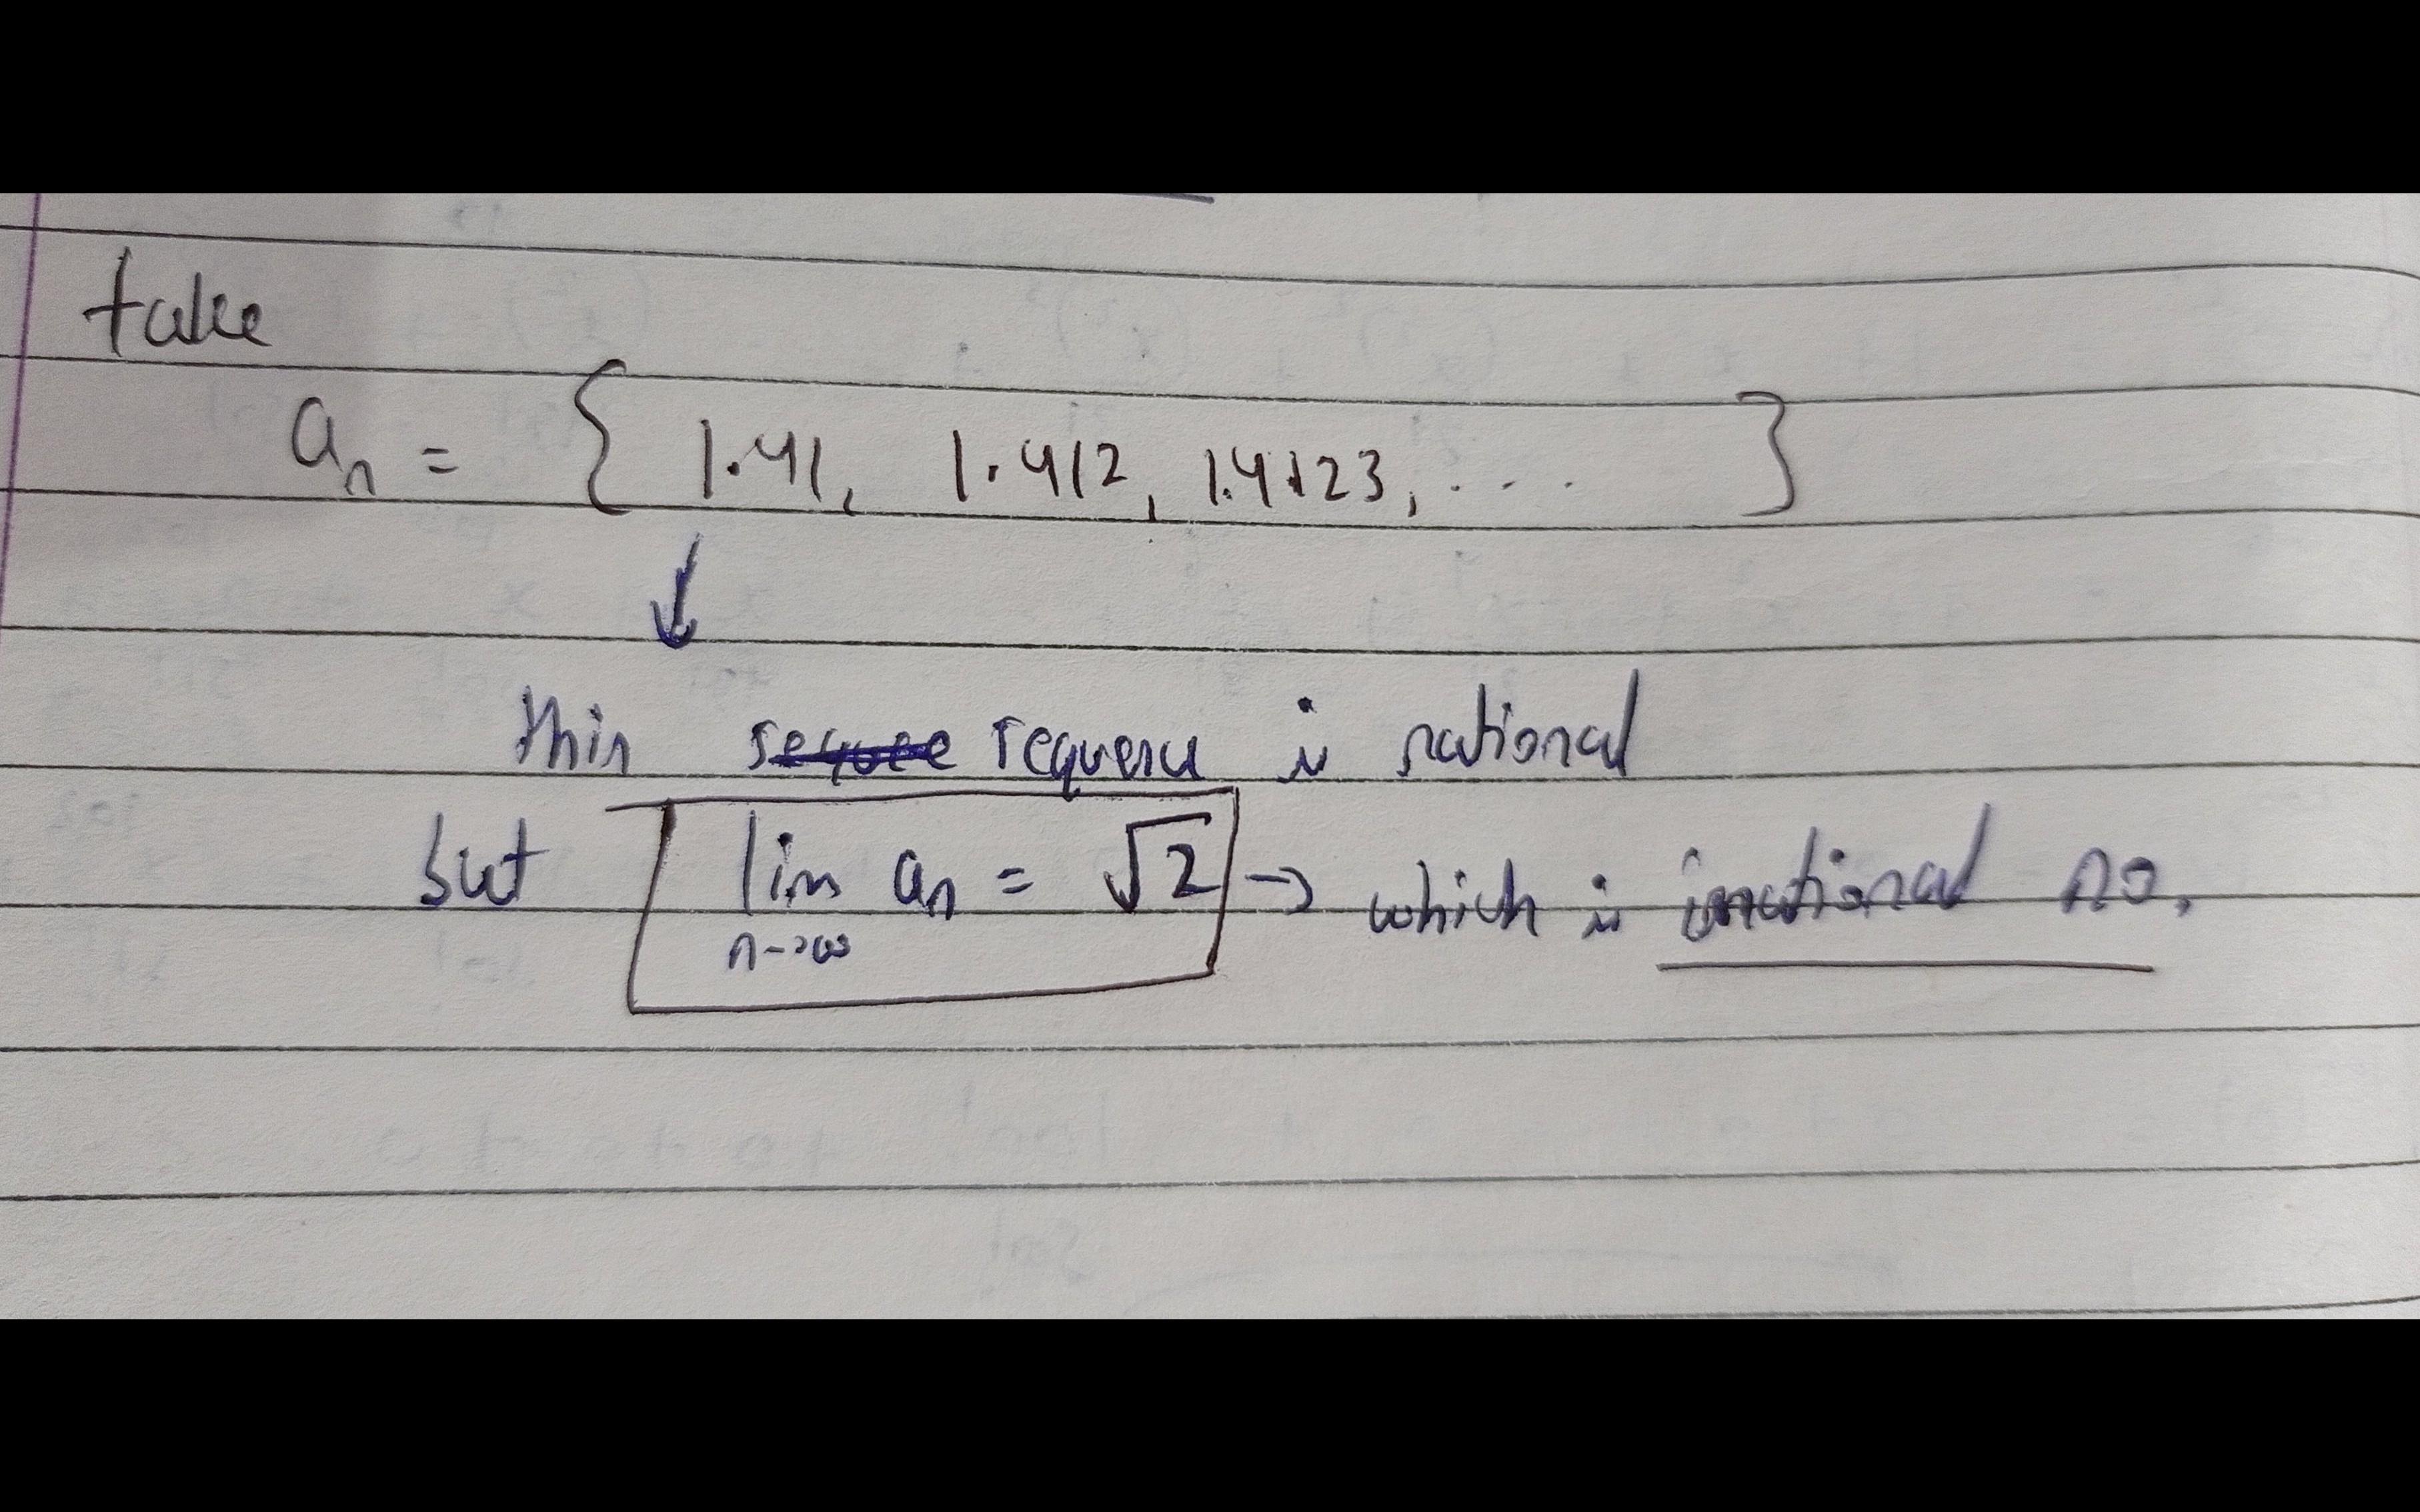 take
aₙ = { 1.41, 1.412, 1.4123, ... }
↓
this sequence is rational
but lim aₙ = √2 → which is irrational no.
n→∞